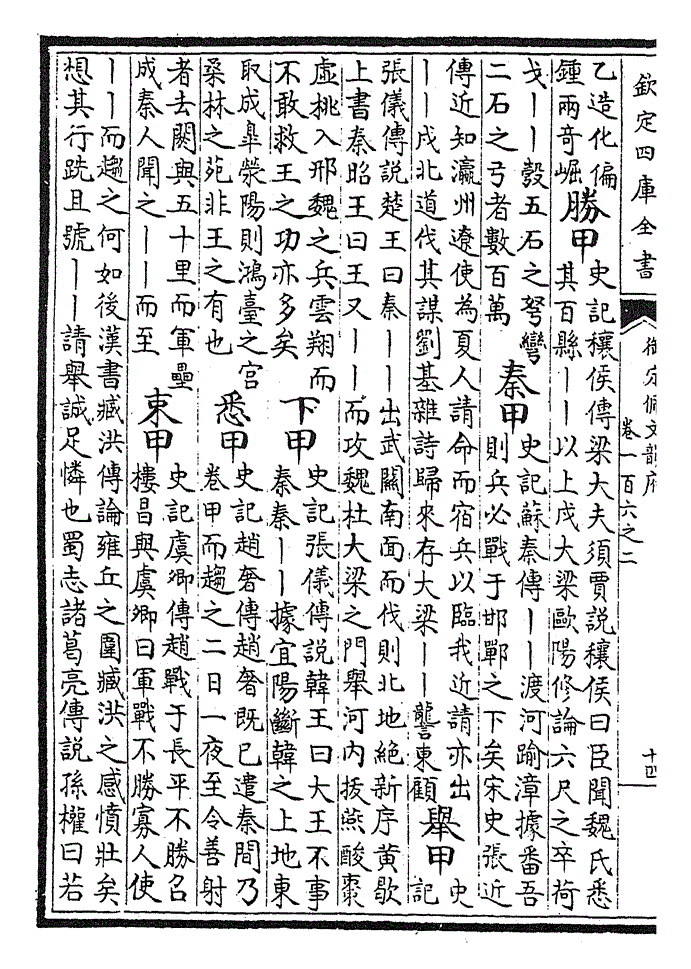 欽定四庫全書
御定佩文韻府
卷一百六之二
十四
乙造化偏
鍾兩奇崛
勝甲
史記穰侯傳梁大夫須賈說穰侯曰臣聞魏氏悉
其百縣丨丨以上戍大梁歐陽修論六尺之卒荷
戈丨丨彀五石之弩彎
二石之弓者數百萬
秦甲
史記蘇秦傳丨丨渡河踰漳據番吾
則兵必戰于邯鄲之下矣宋史張近
傳近知瀛州遼使為夏人請命而宿兵以臨我近請亦出
丨丨戍北道伐其謀劉基雜詩歸來存大梁丨丨讋東顧
舉甲
史
記
張儀傳說楚王曰秦丨丨出武關南面而伐則北地絕新序黃歇
上書秦昭王曰王又丨丨而攻魏杜大梁之門舉河內拔燕酸棗
虛桃入邢魏之兵雲翔而
不敢救王之功亦多矣
下甲
史記張儀傳說韓王曰大王不事
秦秦丨丨據宜陽斷韓之上地東
取成臯滎陽則鴻臺之宮
桑林之苑非王之有也
悉甲
史記趙奢傳趙奢既已遣秦間乃
卷甲而趨之二日一夜至令善射
者去閼與五十里而軍壘
成秦人聞之丨丨而至
束甲
史記虞卿傳趙戰于長平不勝召
樓昌與虞卿曰軍戰不勝寡人使
丨丨而趨之何如後漢書臧洪傳論雍丘之圍臧洪之感憤壯矣
想其行跣且號丨丨請舉誠足憐也蜀志諸葛亮傳說孫權曰若